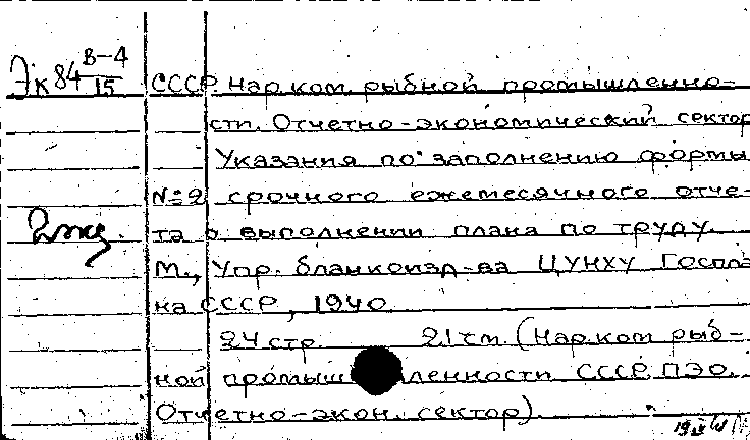 Эк84 В-4/15
СССР. Нар.ком. рыбной промышленно-
сти. Отчетно-экономический сектор
Указания по заполнению формы
№2 срочного ежемесячного отче-
та о выполнении плана по труду.
М., Упр. бланкоизд-ва ЦУНХУ Госпла
на СССР, 1940
24 стр. 21 см. (Нар.ком рыб-
ной промышленности СССР. ПЭО.
Отчетно-экон. сектор).